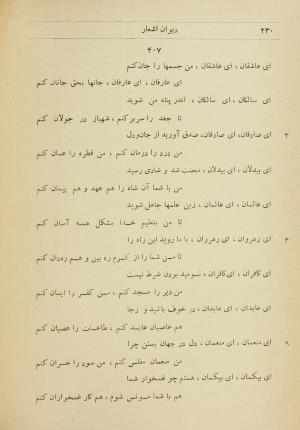 ۲۳۰
دیوان اشعار
۴۰۷
ای عاشقان، ای عاشقان، من جسمها را جان کنم
ای عارفان، ای عارفان، جانها بحق جانان کنم
ای سالکان، ای سالکان، اندر پناه من شوید
تا جغد را سر بر کنم، شهباز در جولان کنم
۳ ای صادقان، ای صادقان، صدق آورید از جان و دل
من درد را درمان کنم، من قطره را عمان کنم
ای بیدلان، ای بیدلان، محنت شد و شادی رسید
من با شما آن شاه را هم عهد و هم پیمان کنم
ای عالمان، ای عالمان، زین علمها جاهل شوید
تا من بتعلیم خدا مشکل همه آسان کنم
۶ ای رهروان، ای رهروان، با ما روید این راه را
تا من شما را از کرم ره بین و هم ره‌دان کنم
ای کافران، ای کافران، نومید بودن شرط نیست
من دیر را مسجد کنم، من کفر را ایمان کنم
ای عابدان، ای عابدان، در خوف باشید و رجا
هم عاصیان عابد کنم، طاعات را عصیان کنم
۹ ای منعمان، ای منعمان، دل در جهان بستن چرا
من منعمان مفلس کنم، من سود را خسران کنم
ای بیکسان، ای بیکسان، هستم چو غمخوار شما
هم با شما مونس شوم، هم کار غمخواران کنم